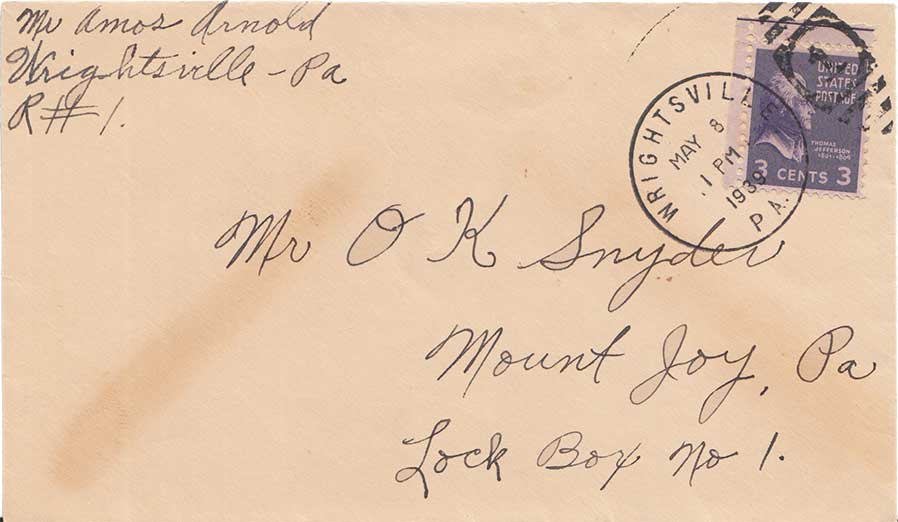 Mr Amos Arnold
Wrightsville - Pa
R # 1.
WRIGHTSVILLE
MAY 8
1 PM
1939
PA.
UNITED
STATES
POSTAGE
THOMAS
JEFFERSON
1801-1809
3 CENTS 3
Mr O K Snyder
Mount Joy, Pa
Lock Box No 1.